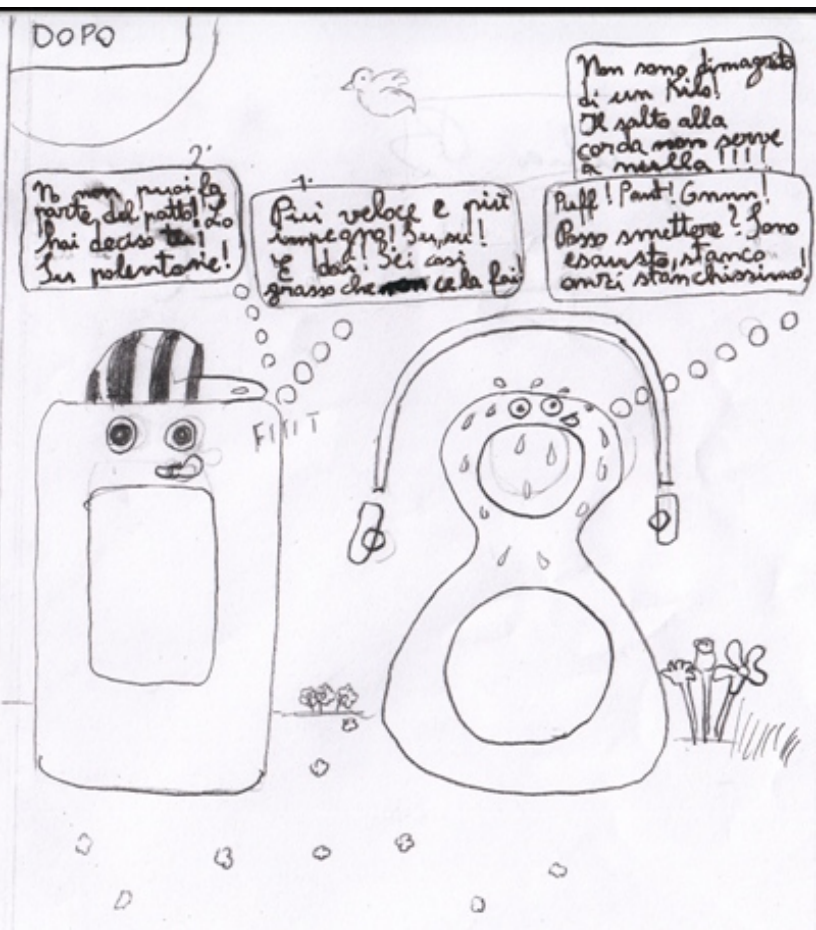 DOPO
Non sono dimagrito
di un Kilo!
Il salto alla
corda non serve
a nulla!!!!
2°
No non puoi fa
parte del patto! Lo
hai deciso tu!
Su polentone!
1°
Più veloce e più
impegno! Su, su!
E dai! Sei così
grasso che non ce la fai
Puff! Pant! Gnnnn!
Posso smettere? Sono
esausto, stanco
anzi stanchissimo!
FIIIT